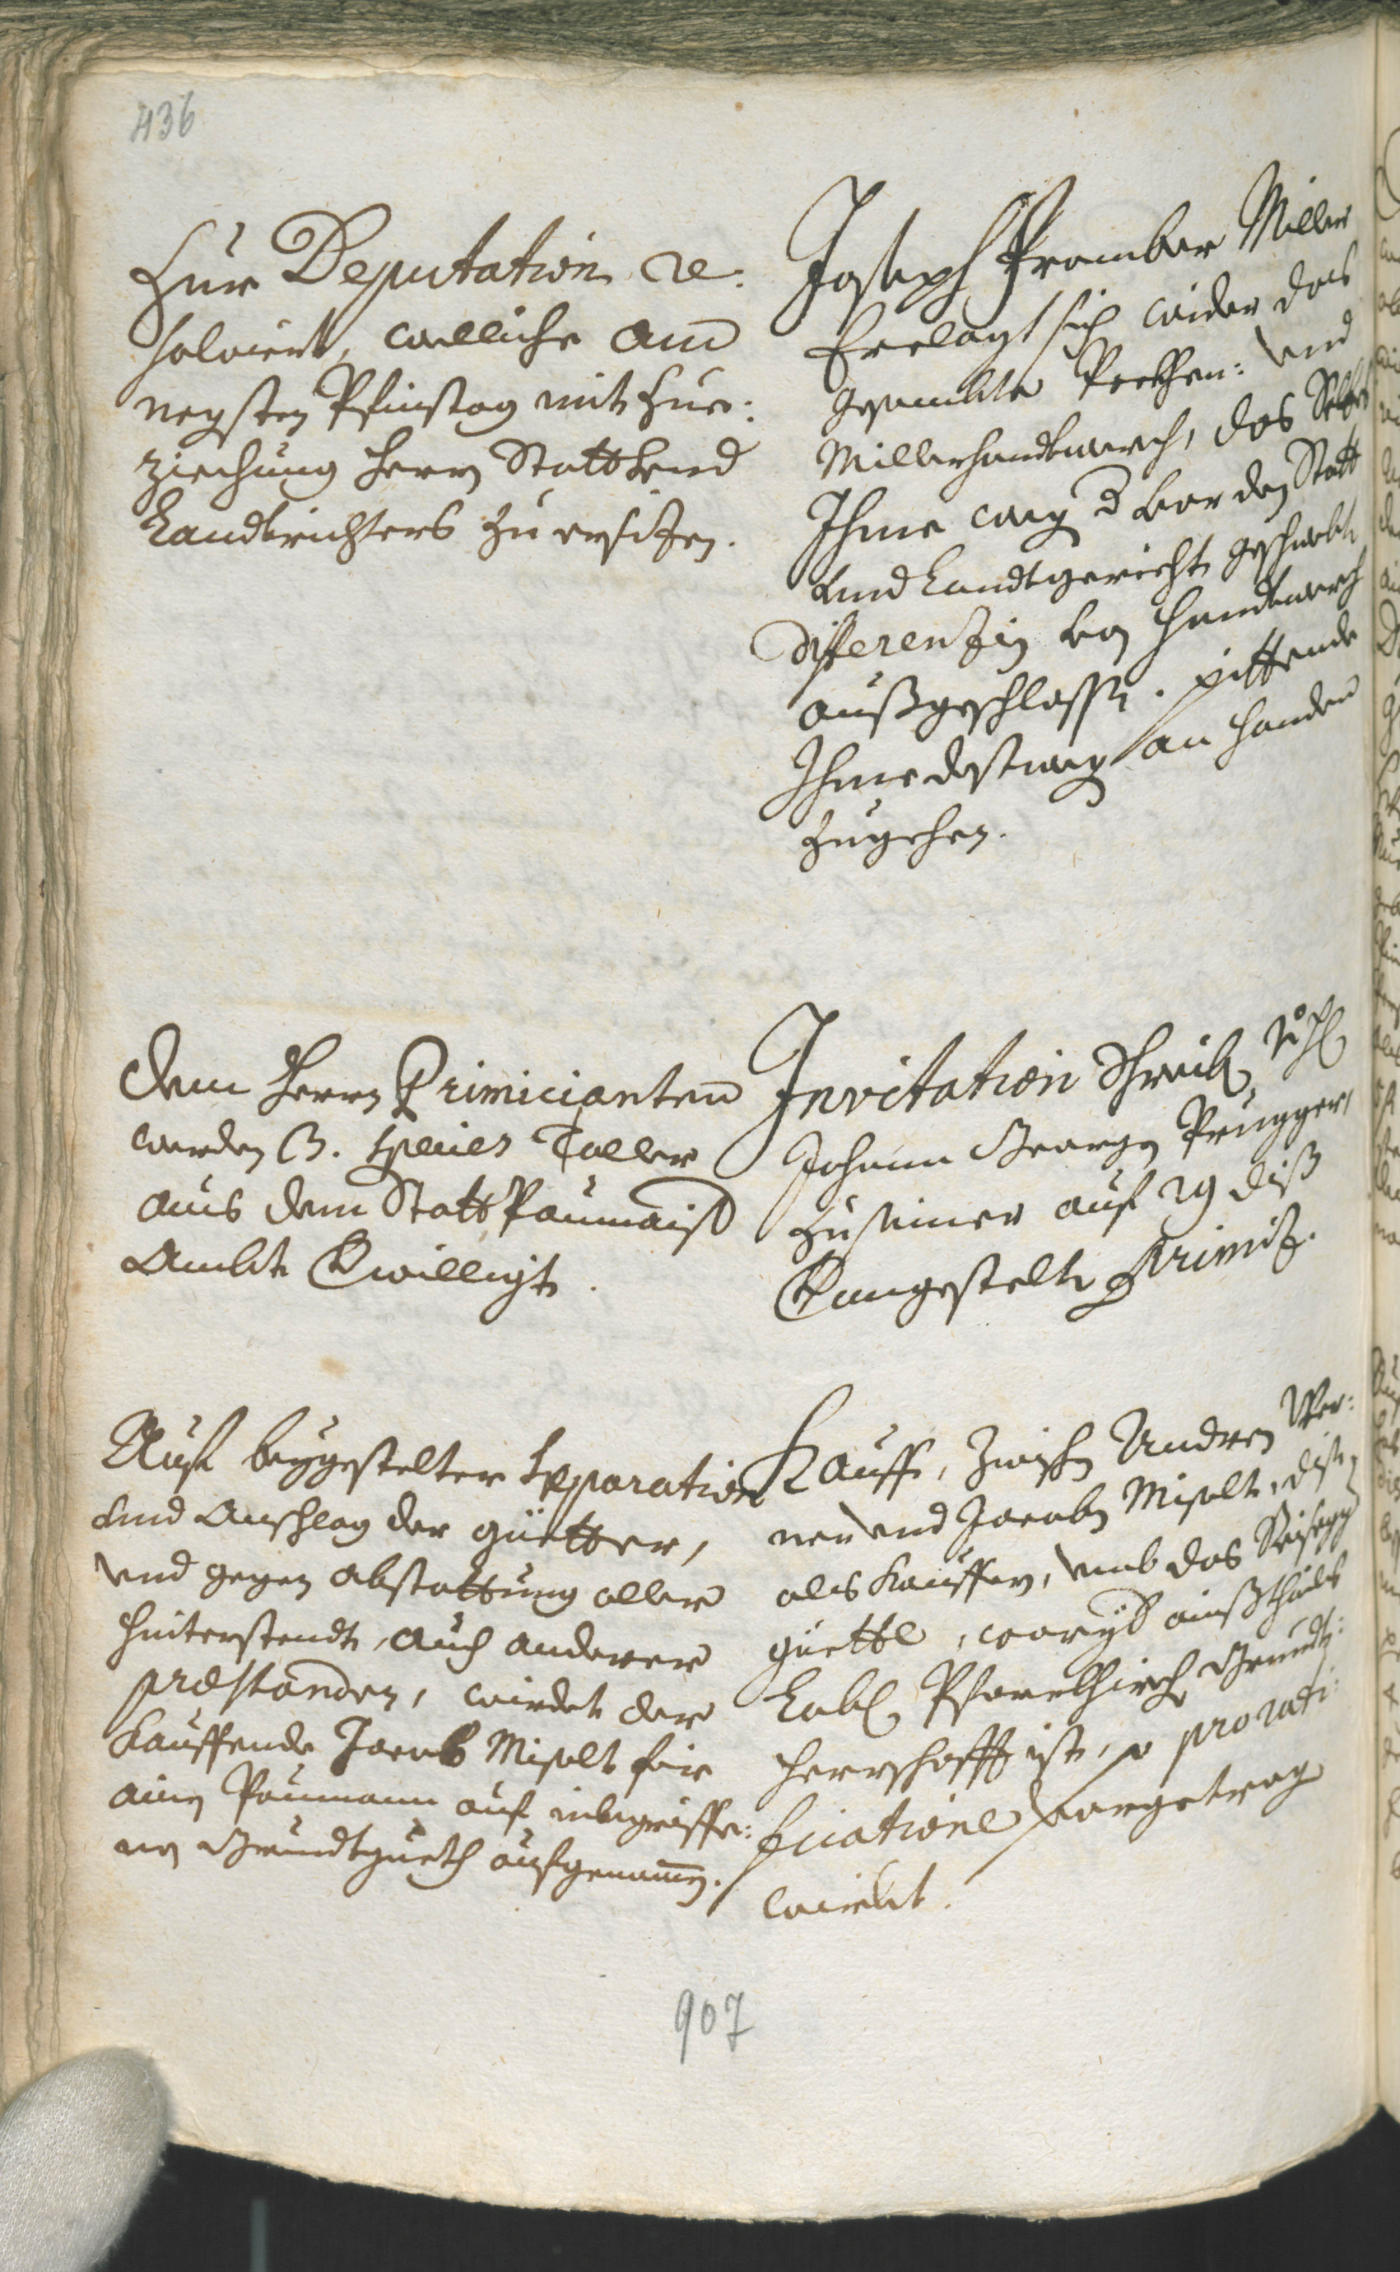 436
Zur Deputation re:
solviert, welliche am
negsten Pfinstag mit Zue:
ziechung Herrn Statt Und
Landtrichters zu ersizen.
Joseph Prember Miller
beclagt sich wider das
gesambte Pekhen: Und
Millerhandtwerch, das
Ihme weg vor dem Statt
Und Landtgericht gehabte
differenzien von Handtwerch
außgeschlossen. pittende
Ihme destweg an Handen
zugehen.
Dem Herrn Primicianten
werden 3. Species Taller
aus dem Statt Paumaister
Ambt Bewilligt.
Invitation Schreiben
Johann Georgen Prugger,
zu seiner auf 29 diß
angestelte Primiz.
Auf beygestelter Separation
Und Anschlag der güetter,
und gegen abstattung aller
hinterstendt, auch anderer
præstanden, wirdet der
Kauffende Jacob Miselt für
ainen Paumann auf inbegriffe:
nen Grundtgueth aufgenommen.
Kauff, zwischen Andreen
nen und Jacoben Miselt, disen
als Kauffer, umb das
güettl, woryber ainß theils
Löbl Pfarrkhirchen Grundt:
herrschafft ist, pro rati:
ficatione vorgetragen
wirdet.
907